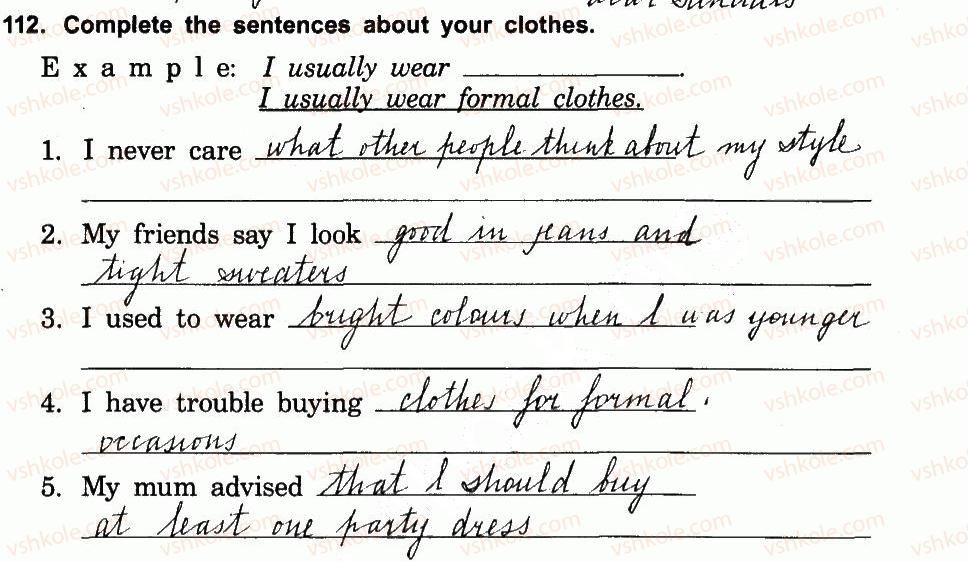 wear sundurs
112. Complete the sentences about your clothes.
Example: I usually wear ____________.
I usually wear formal clothes.
1. I never care what other people think about my style
2. My friends say I look good in jeans and
tight sweaters
3. I used to wear bright colours when I was younger
4. I have trouble buying clothes for formal.
occasions
5. My mum advised that I should buy
at least one party dress
vshkole.com